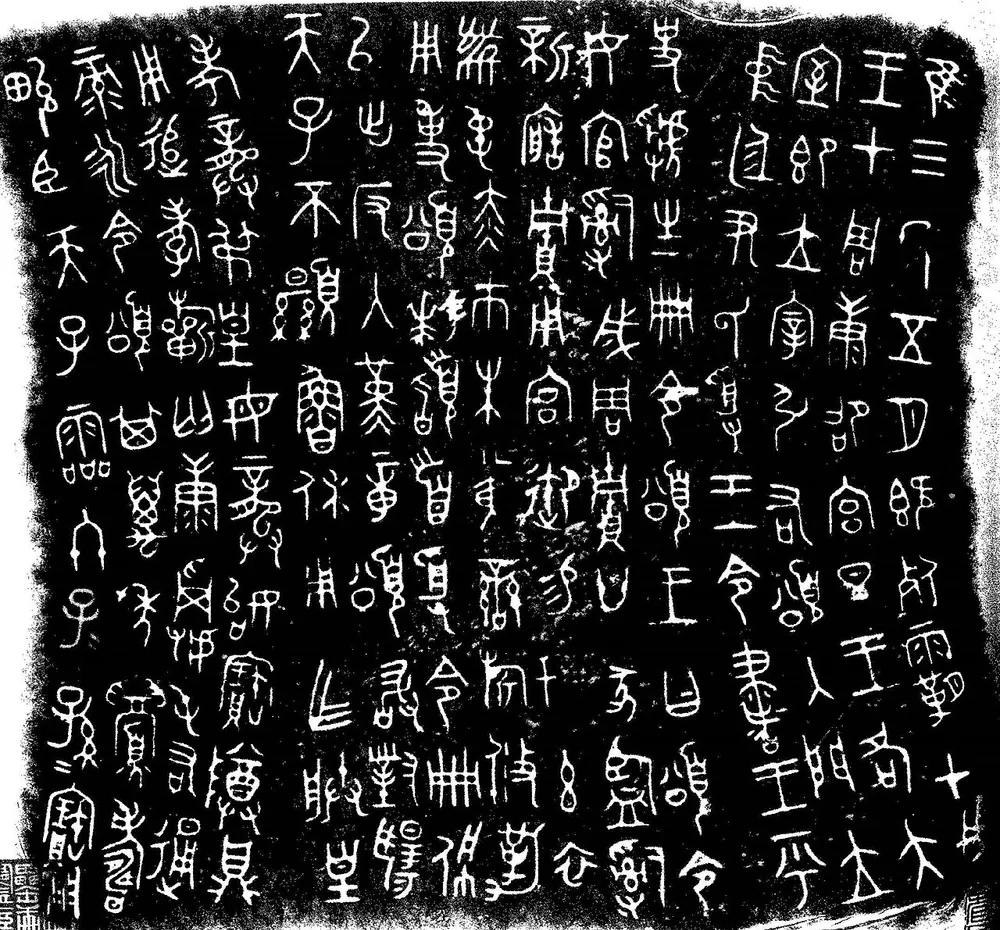 隹三年五月既死霸甲戌
王才周康卲宮旦王各大
室即立宰弘右頌入門立
中廷尹氏受王令書王乎
史虢生冊令頌王曰頌令
女官𤔲成周貯廿家監𤔲
新造貯用宮御易女玄衣
黹屯赤巿朱黃䜌旂攸勒
用事頌拜𩒨首受令冊佩
以出反入堇章頌敢對揚
天子不顯魯休用乍朕皇
考龏弔皇母龏始寶尊鼎
用追孝祈匄康𩛥屯右通
彔永令頌其萬年眉壽
畯臣天子霝冬子孫=寶用